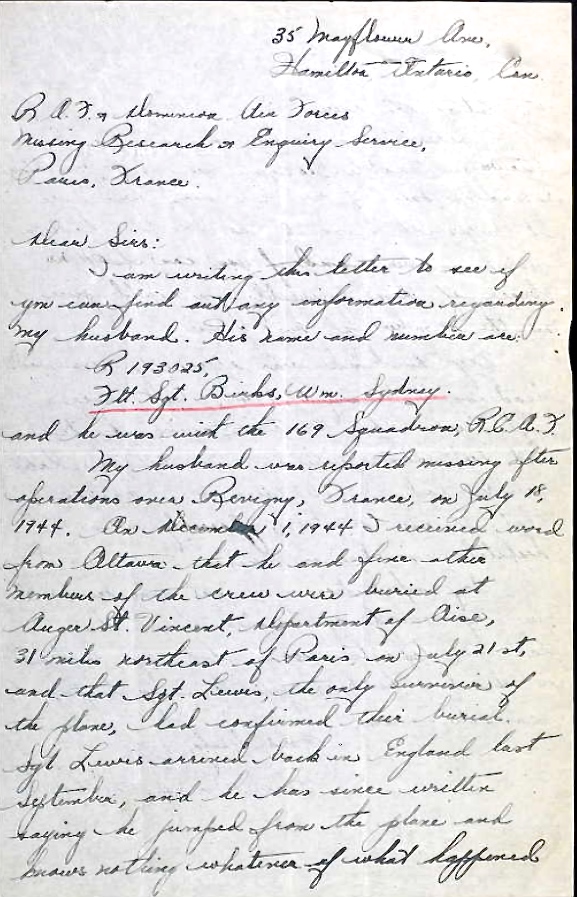 35 Mayflower Ave,
Hamilton Ontario, Can.
R.A.F. & Dominion Air Forces
Missing Research & Enquiry Service,
Paris, France.
Dear Sirs:
I am writing this letter to see if
you can find out any information regarding
my husband. His name and number are:
R 193025,
Flt. Sgt. Binks, Wm. Sydney.
and he was with the 169 Squadron, R.C.A.F.
My husband was reported missing after
operations over Revigny, France, on July 18,
1944. On December 1, 1944 I received word
from Ottawa that he and five other
members of the crew were buried at
Auger St. Vincent, Department of Aise,
31 miles northeast of Paris on July 21st,
and that Sgt. Lewis, the only survivor of
the plane, had confirmed their burial.
Sgt Lewis arrived back in England last
September, and he has since written
saying he jumped from the plane and
knows nothing whatever of what happened